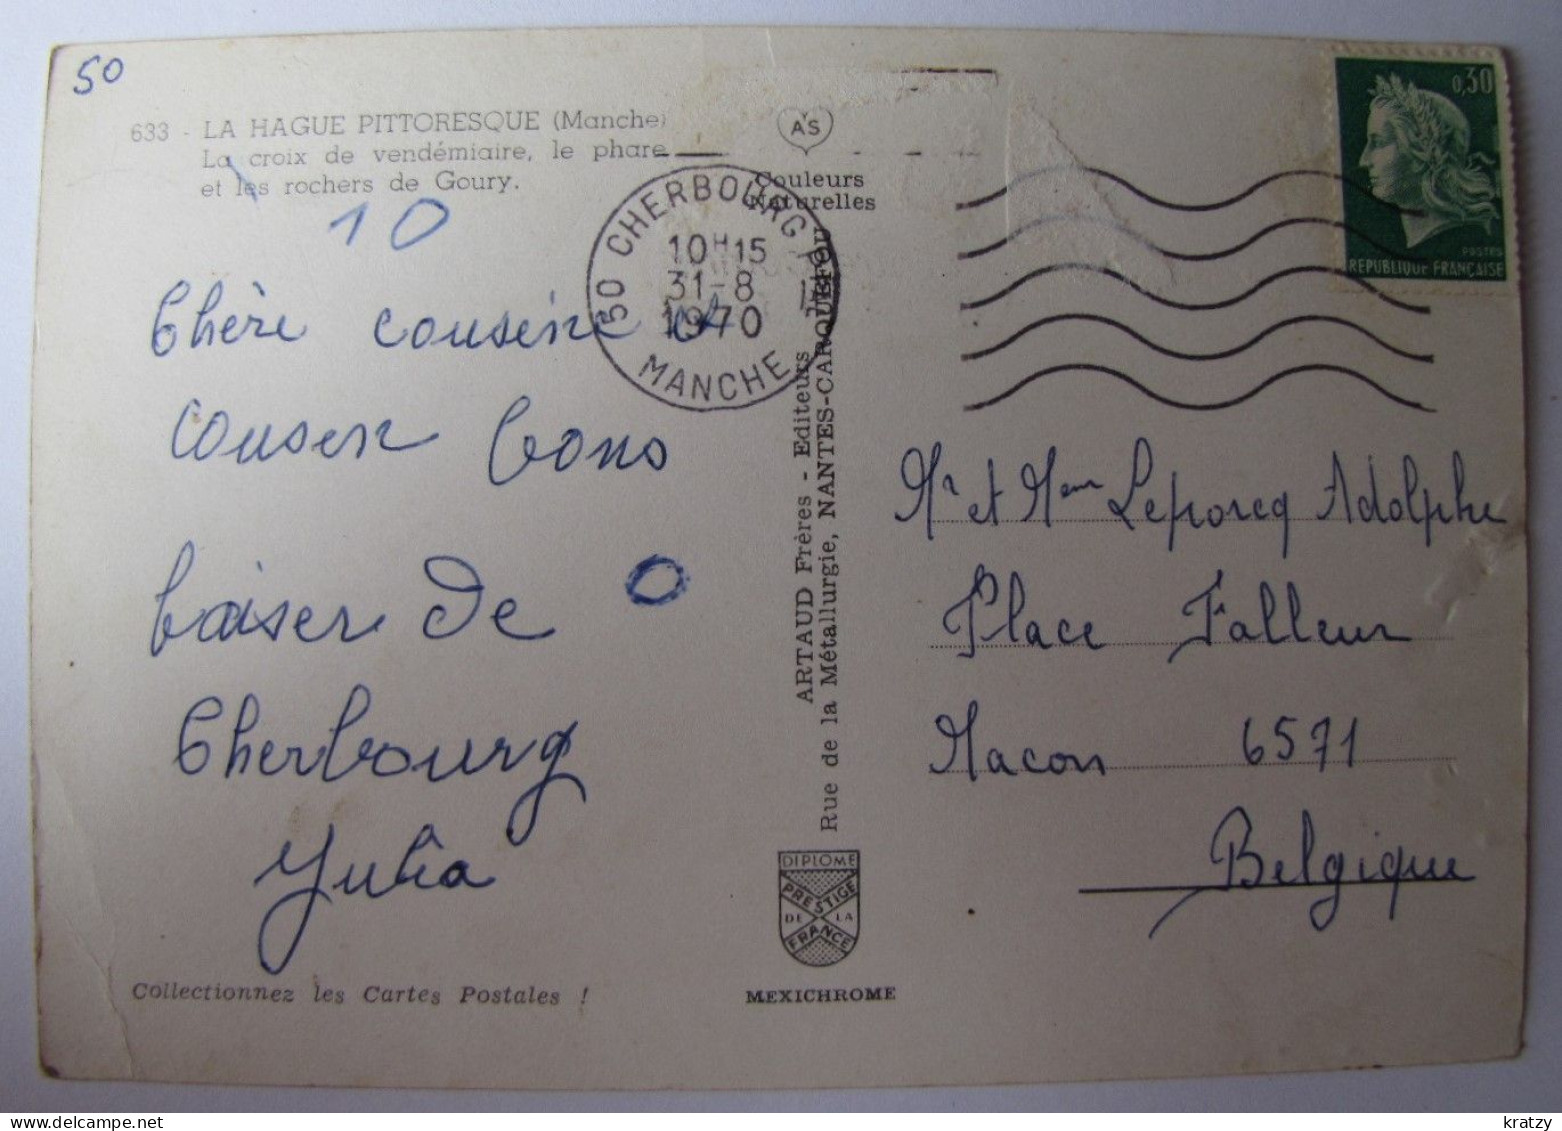 50
633 - LA HAGUE PITTORESQUE (Manche)
La croix de vendémiaire, le phare
et les rochers de Goury.
10
Chère cousine et
cousin bons
baiser de
Cherbourg
Julia
O
Collectionnez les Cartes Postales !
50 CHERBOURG
10H15
31-8
1970
MANCHE
AYS
Couleurs
Naturelles
ARTAUD Frères - Editeurs
Rue de la Métallurgie, NANTES-CARQUEFOU
DIPLOME
PRESTIGE
DE LA
FRANCE
MEXICHROME
0,30
POSTES
REPUBLIQUE FRANÇAISE
Mr et Mem Leporcq Adolphe
Place Falleur
Macon 6571
Belgique
kratzy